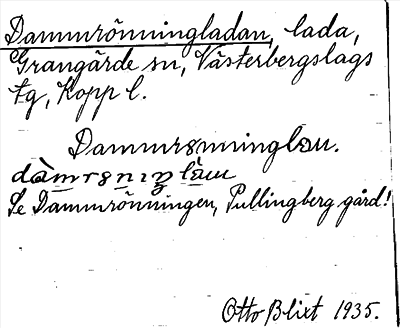 Dammrönningladan, lada,
Grangärde sn, Västerbergslags
tg, Kopp l.
Dammrönninglau.
Se Dammrönningen, Pullingberg gård!
Otto Blixt 1935.